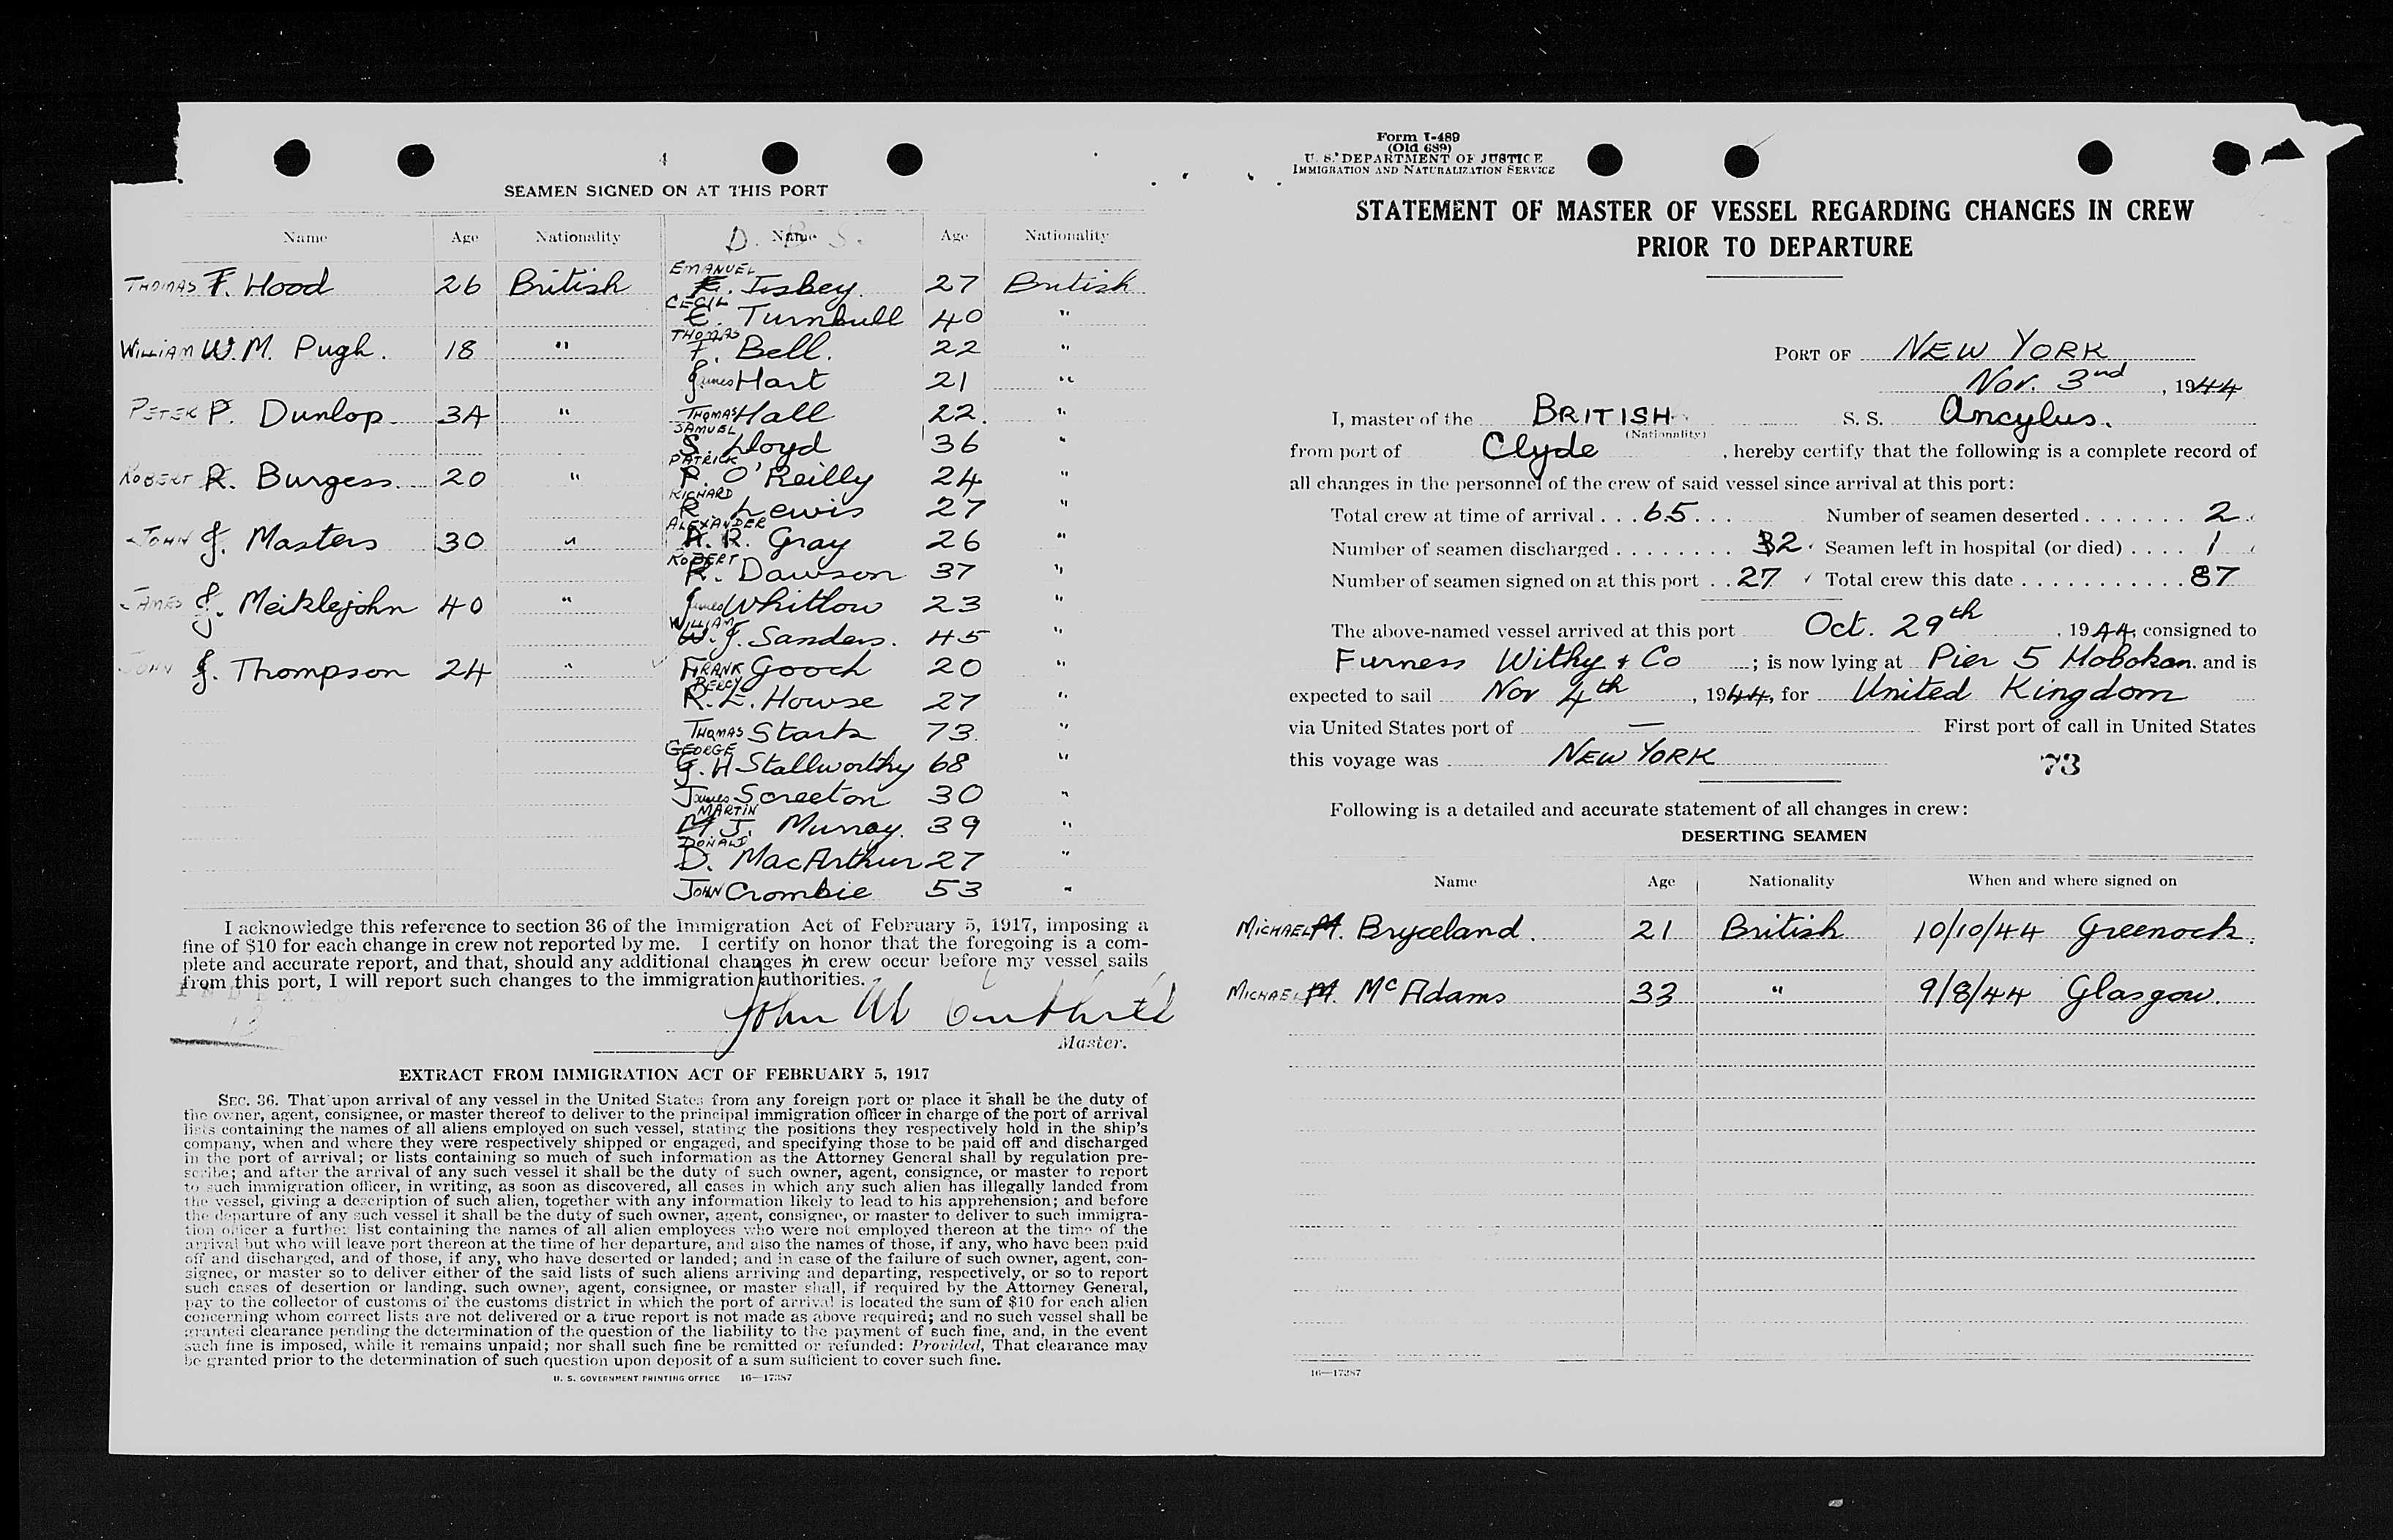 4
SEAMEN SIGNED ON AT THIS PORT
Name Age Nationality Name Age Nationality
D. B. S.
THOMAS T. Hood 26 British
WILLIAM W. M. Pugh. 18 "
PETER P. Dunlop 34 "
ROBERT R. Burgess 20 "
JOHN J. Masters 30 "
JAMES J. Meiklejohn 40 "
JOHN J. Thompson 24 "
EMANUEL E. Isbey. 27 British
CECIL C. Turnbull 40 "
THOMAS T. Bell. 22 "
James Hart 21 "
THOMAS Hall 22. "
SAMUEL S. Lloyd 36 "
PATRICK P. O'Reilly 24 "
RICHARD R. Lewis 27 "
ALEXANDER A. R. Gray 26 "
ROBERT R. Dawson 37 "
James Whitlow 23 "
WILLIAM W. J. Sanders. 45 "
FRANK Gooch 20 "
PERCY R. L. Howse 27 "
THOMAS Stark 73. "
GEORGE G. H Stallworthy 68 "
James Screeton 30 "
MARTIN M. J. Murray. 39 "
DONALD D. MacArthur 27 "
JOHN Crombie 53 "
I acknowledge this reference to section 36 of the Immigration Act of February 5, 1917, imposing a
fine of $10 for each change in crew not reported by me. I certify on honor that the foregoing is a com-
plete and accurate report, and that, should any additional changes in crew occur before my vessel sails
from this port, I will report such changes to the immigration authorities.
John
Master.
EXTRACT FROM IMMIGRATION ACT OF FEBRUARY 5, 1917
SEC. 36. That upon arrival of any vessel in the United States from any foreign port or place it shall be the duty of
the owner, agent, consignee, or master thereof to deliver to the principal immigration officer in charge of the port of arrival
lists containing the names of all aliens employed on such vessel, stating the positions they respectively hold in the ship's
company, when and where they were respectively shipped or engaged, and specifying those to be paid off and discharged
in the port of arrival; or lists containing so much of such information as the Attorney General shall by regulation pre-
scribe; and after the arrival of any such vessel it shall be the duty of such owner, agent, consignee, or master to report
to such immigration officer, in writing, as soon as discovered, all cases in which any such alien has illegally landed from
the vessel, giving a description of such alien, together with any information likely to lead to his apprehension; and before
the departure of any such vessel it shall be the duty of such owner, agent, consignee, or master to deliver to such immigra-
tion officer a further list containing the names of all alien employees who were not employed thereon at the time of the
arrival but who will leave port thereon at the time of her departure, and also the names of those, if any, who have been paid
off and discharged, and of those, if any, who have deserted or landed; and in case of the failure of such owner, agent, con-
signee, or master so to deliver either of the said lists of such aliens arriving and departing, respectively, or so to report
such cases of desertion or landing, such owner, agent, consignee, or master shall, if required by the Attorney General,
pay to the collector of customs of the customs district in which the port of arrival is located the sum of $10 for each alien
concerning whom correct lists are not delivered or a true report is not made as above required; and no such vessel shall be
granted clearance pending the determination of the question of the liability to the payment of such fine, and, in the event
such fine is imposed, while it remains unpaid; nor shall such fine be remitted or refunded: Provided, That clearance may
be granted prior to the determination of such question upon deposit of a sum sufficient to cover such fine.
U. S. GOVERNMENT PRINTING OFFICE 16—17387
Form I-489
(Old 689)
U. S. DEPARTMENT OF JUSTICE
IMMIGRATION AND NATURALIZATION SERVICE
STATEMENT OF MASTER OF VESSEL REGARDING CHANGES IN CREW
PRIOR TO DEPARTURE
PORT OF NEW YORK
Nov. 3nd, 1944
I, master of the BRITISH S. S. Ancylus.
(Nationality)
from port of Clyde, hereby certify that the following is a complete record of
all changes in the personnel of the crew of said vessel since arrival at this port:
Total crew at time of arrival . . . 65 . . . Number of seamen deserted . . . . . . . 2
Number of seamen discharged . . . . . . . . 32 Seamen left in hospital (or died) . . . . 1
Number of seamen signed on at this port . . 27 Total crew this date . . . . . . . . . . . 87
The above-named vessel arrived at this port Oct. 29th, 1944, consigned to
Furness Withy & Co; is now lying at Pier 5 Hoboken. and is
expected to sail Nov 4th, 1944, for United Kingdom
via United States port of — First port of call in United States
this voyage was NEW YORK
73
Following is a detailed and accurate statement of all changes in crew:
DESERTING SEAMEN
Name Age Nationality When and where signed on
MICHAEL M. Bryceland. 21 British 10/10/44 Greenock.
MICHAEL M. McAdams 33 " 9/8/44 Glasgow.
16—17387